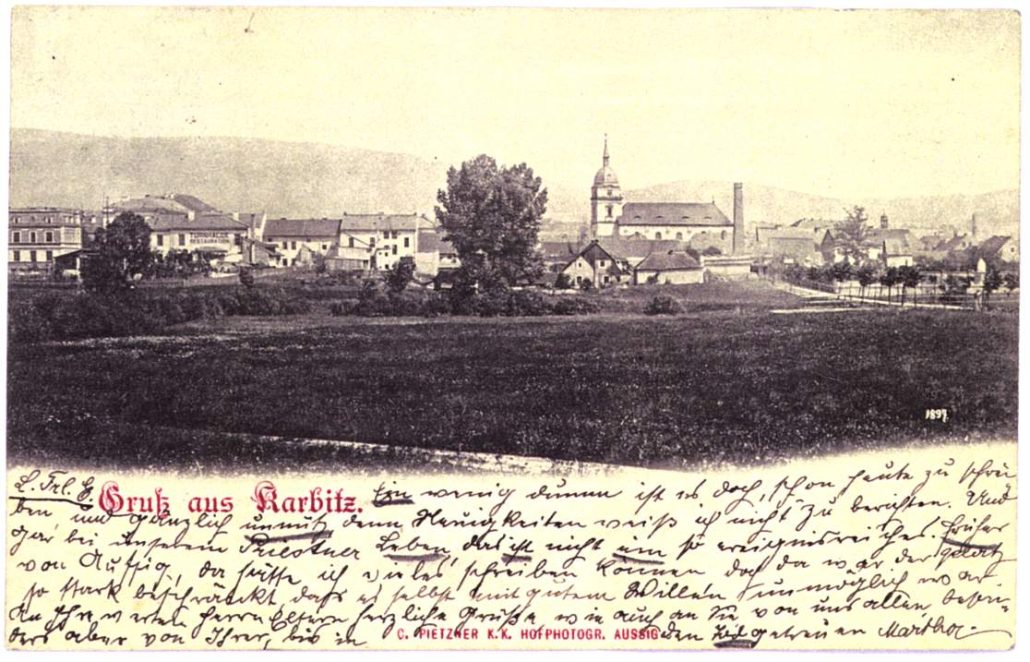 TURNHALLE
RESTAURATION
1897
L. Frl. G. Gruß aus Karbitz. Ein wenig dumm ist es doch, schon heute zu schrei-
ben, und gänzlich unnütz denn Neuigkeiten weiß ich nicht zu berichten. Und
gar bei unserem Priestner Leben, das ist nicht um so ereignisreiches. Früher
von Aussig, da hätte ich vieles schreiben können doch da war der Platz
so stark beschränkt, daß es selbst mit gutem Willen unmöglich war.
An Ihre werten Herrn Eltern herzliche Grüße, wie auch an Sie von uns allen beson-
ders aber von Ihrer, bis in den Tod getreuen Martha.
C. PIETZNER K.K. HOFPHOTOGR. AUSSIG